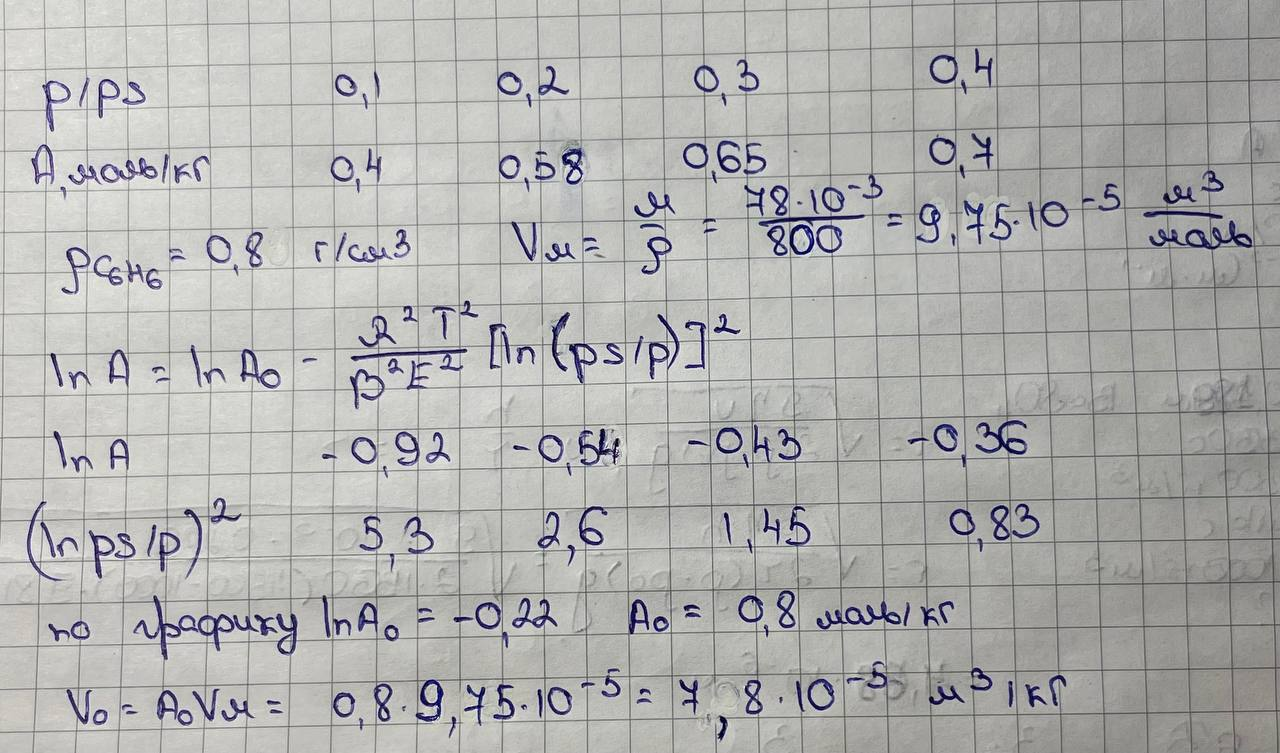 p/ps 0,1 0,2 0,3 0,4
A, моль/кг 0,4 0,58 0,65 0,7
ρC₆H₆ = 0,8 г/см3 Vм = M/ρ = 78·10⁻³/800 = 9,75·10⁻⁵ м³/моль
ln A = ln A₀ - R²T²/B²E² [ln(ps/p)]²
ln A -0,92 -0,54 -0,43 -0,36
(ln ps/p)² 5,3 2,6 1,45 0,83
по графику ln A₀ = -0,22 A₀ = 0,8 моль/кг
V₀ = A₀Vм = 0,8·9,75·10⁻⁵ = 7,8·10⁻⁵ м³/кг